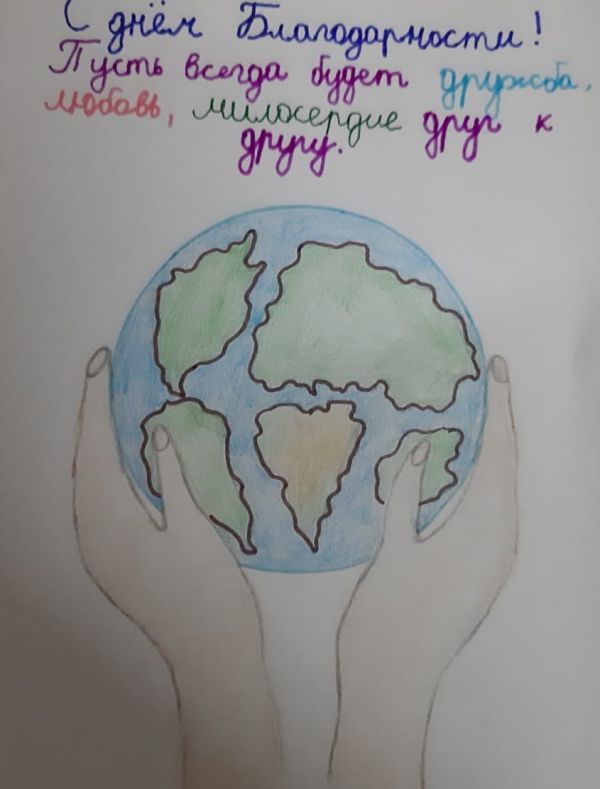 С днём Благодарности!
Пусть всегда будет дружба,
любовь, милосердие друг к
другу.